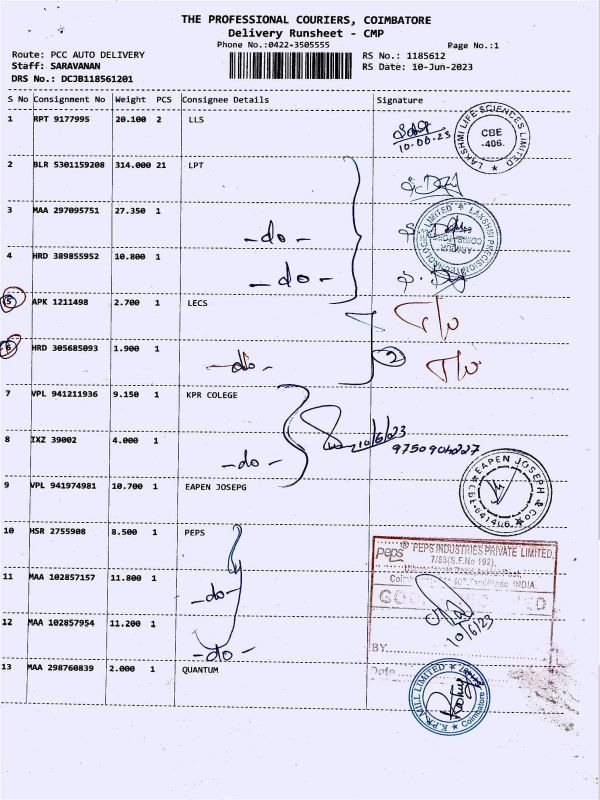 THE PROFESSIONAL COURIERS, COIMBATORE
Delivery Runsheet - CMP
Phone No.:0422-3505555
Page No.:1
Route: PCC AUTO DELIVERY
RS No.: 1185612
Staff: SARAVANAN
RS Date: 10-Jun-2023
DRS No.: DCJB118561201
S No Consignment No Weight PCS Consignee Details Signature
1 RPT 9177995 20.100 2 LLS
10-06-23
LAKSHMI LIFE SCIENCES LIMITED
CBE
-406.
2 BLR 5301159208 314.000 21 LPT
3 MAA 297095751 27.350 1
-do-
4 HRD 389855952 10.800 1
-do-
5 APK 1211498 2.700 1 LECS
T/o
6 HRD 305685093 1.900 1
-do-
2
T/o
7 VPL 941211936 9.150 1 KPR COLEGE
10/6/23
8 IXZ 39002 4.000 1
-do-
9 VPL 941974981 10.700 1 EAPEN JOSEPG
EAPEN JOSEPH & Co
10 HSR 2755908 8.500 1 PEPS
peps PEPS INDUSTRIES PRIVATE LIMITED.
7/83(S.F.No 192),
INDIA.
11 MAA 102857157 11.800 1
-do-
12 MAA 102857954 11.200 1
-do-
10/6/23
BY
Date
13 MAA 298760839 2.000 1 QUANTUM
K.P.R MILL LIMITED
Coimbatore